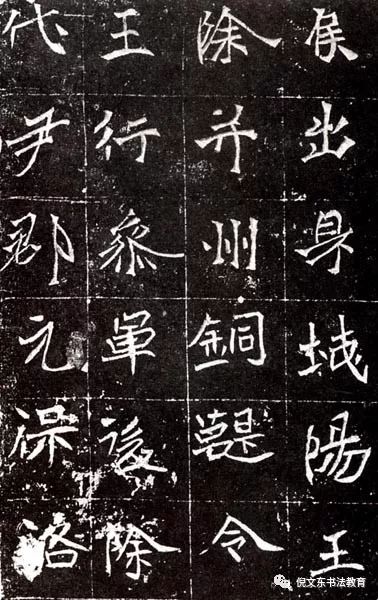 侯出身城陽王
除并州銅鞮令
王行參軍後除
代尹郡元洛
倪文东书法教育